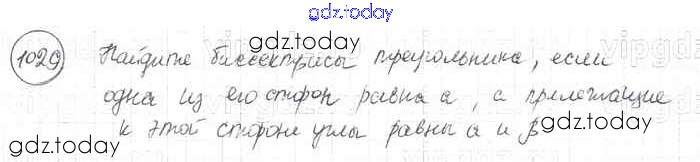 gdz.today
1029 Найдите биссектрисы треугольника, если
gdz.today
одна из его сторон равна a, а прилежащие
к этой стороне углы равны α и β
gdz.today
gdz.today